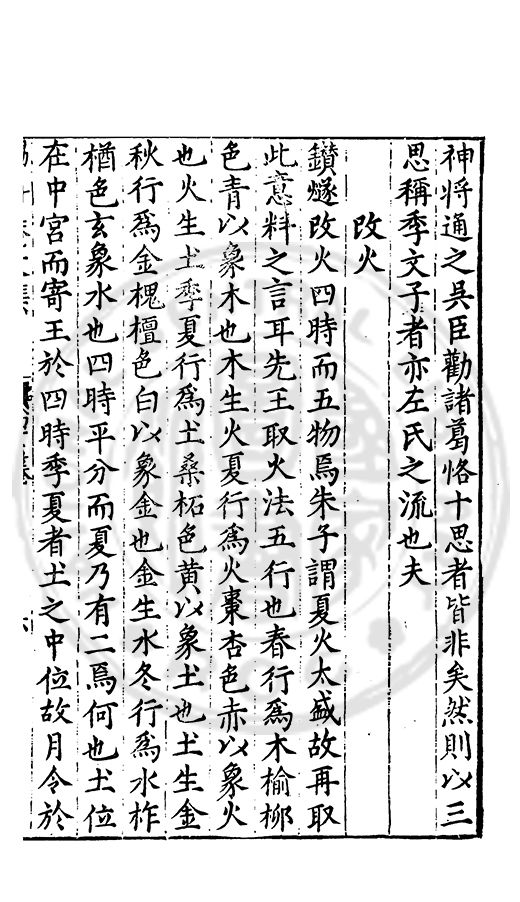 神將通之吳臣勸諸葛恪十思者皆非矣然則以三
思稱季文子者亦左氏之流也夫
改火
鑚燧改火四時而五物焉朱子謂夏火太盛故再取
此意料之言耳先王取火法五行也春行爲木榆柳
色青以象木也木生火夏行爲火棗杏色赤以象火
也火生土季夏行爲土桑柘色黄以象土也土生金
秋行爲金槐檀色白以象金也金生水冬行爲水柞
楢色玄象水也四時平分而夏乃有二焉何也土位
在中宮而寄王於四時季夏者土之中位故月令於